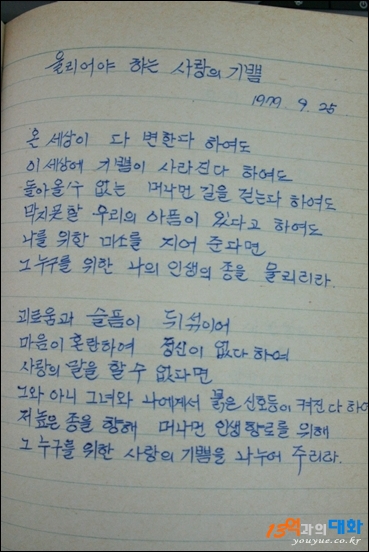 울리어야 하는 사랑의 기쁨
1979. 9. 25.
온 세상이 다 변한다 하여도
이 세상에 기쁨이 사라진다 하여도
돌아올수 없는 머나먼 길을 걷는다 하여도
막지못할 우리의 아픔이 있다고 하여도
나를 위한 미소를 지어 준다면
그 누구를 위한 나의 인생의 종을 울리리라.
괴로움과 슬픔이 뒤섞이어
마음이 혼란하여 정신이 없다 하여
사랑의 말을 할 수 없다면
그와 아니 그녀와 나에게서 붉은 신호등이 켜진다 하여
저 높은 종을 향해 머나먼 인생항로를 위해
그 누구를 위한 사랑의 기쁨을 나누어 주리라.
13억과의 대화
youyue.co.kr